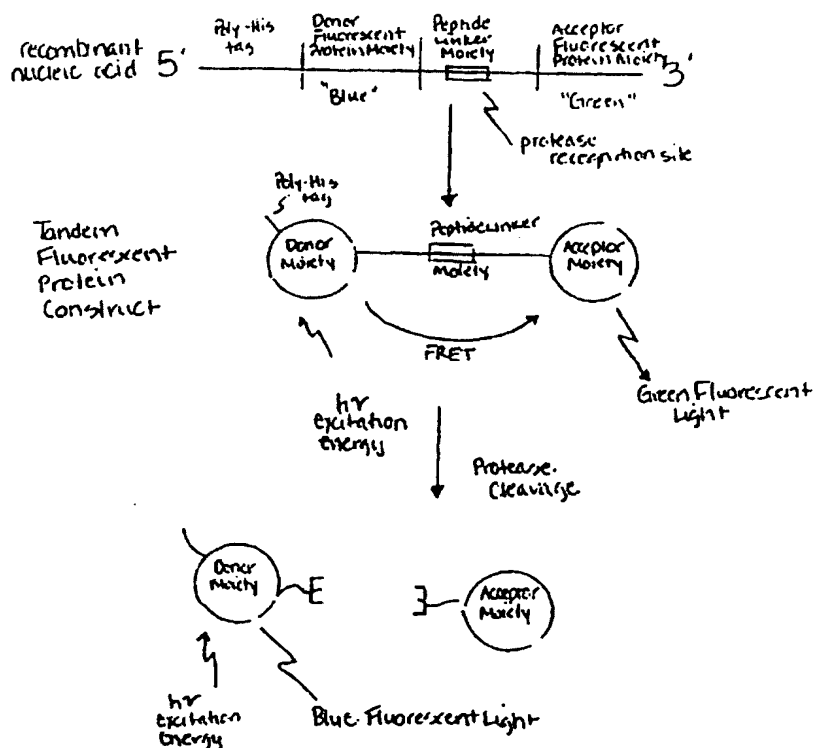 recombinant
nucleic acid
5'
Poly-His
tag
Donor
Fluorescent
Protein Moiety
"Blue"
Peptide
Linker
Moiety
Acceptor
Fluorescent
Protein Moiety
"Green"
3'
protease
recognition site
Tandem
Fluorescent
Protein
Construct
Poly-His
tag
Donor
Moiety
Peptide Linker
Moiety
Acceptor
Moiety
FRET
hv
excitation
energy
Green Fluorescent
Light
Protease
Cleavage
Donor
Moiety
Acceptor
Moiety
hv
excitation
energy
Blue Fluorescent Light